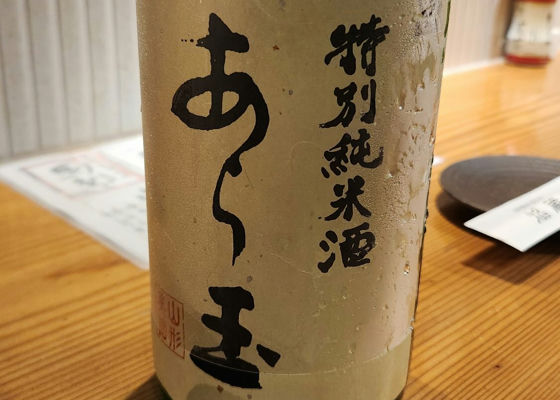 特別純米酒
あら玉
山形